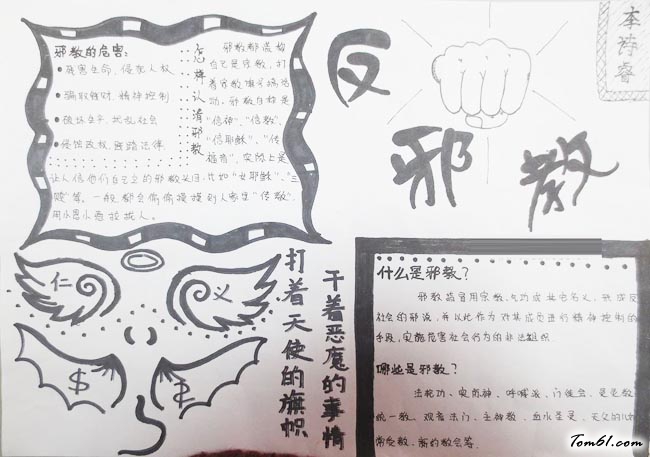 邪教的危害:
残害生命、侵犯人权
骗取钱财、精神控制
破坏生产、扰乱社会
侵蚀政权、践踏法律
怎样认清邪教
邪教都谎称
自己是宗教,打
着宗教旗号搞活
动。邪教自称是
“信神”、“信教”、
“信耶稣”、“传
福音”,实际上是
让人信他们自己立的邪教头目;比如“女耶稣”、“三
赎”等,一般都会偷偷摸摸到人家里“传教”,
用小恩小惠
反
邪教
李诗睿
仁
义
$
打着天使的旗帜
干着恶魔的事情
什么是邪教?
邪教是冒用宗教、气功或其它名义,
社会的邪说,并以此作为对其成员进行精神控制的
手段,实施危害社会行为的非法组织.
哪些是邪教?
法轮功、实际神、呼喊派、门徒会、灵灵教
统一教、观音法门、主神教、血水圣灵、天父的儿女
常受教、新约教会等.
Tom61.com